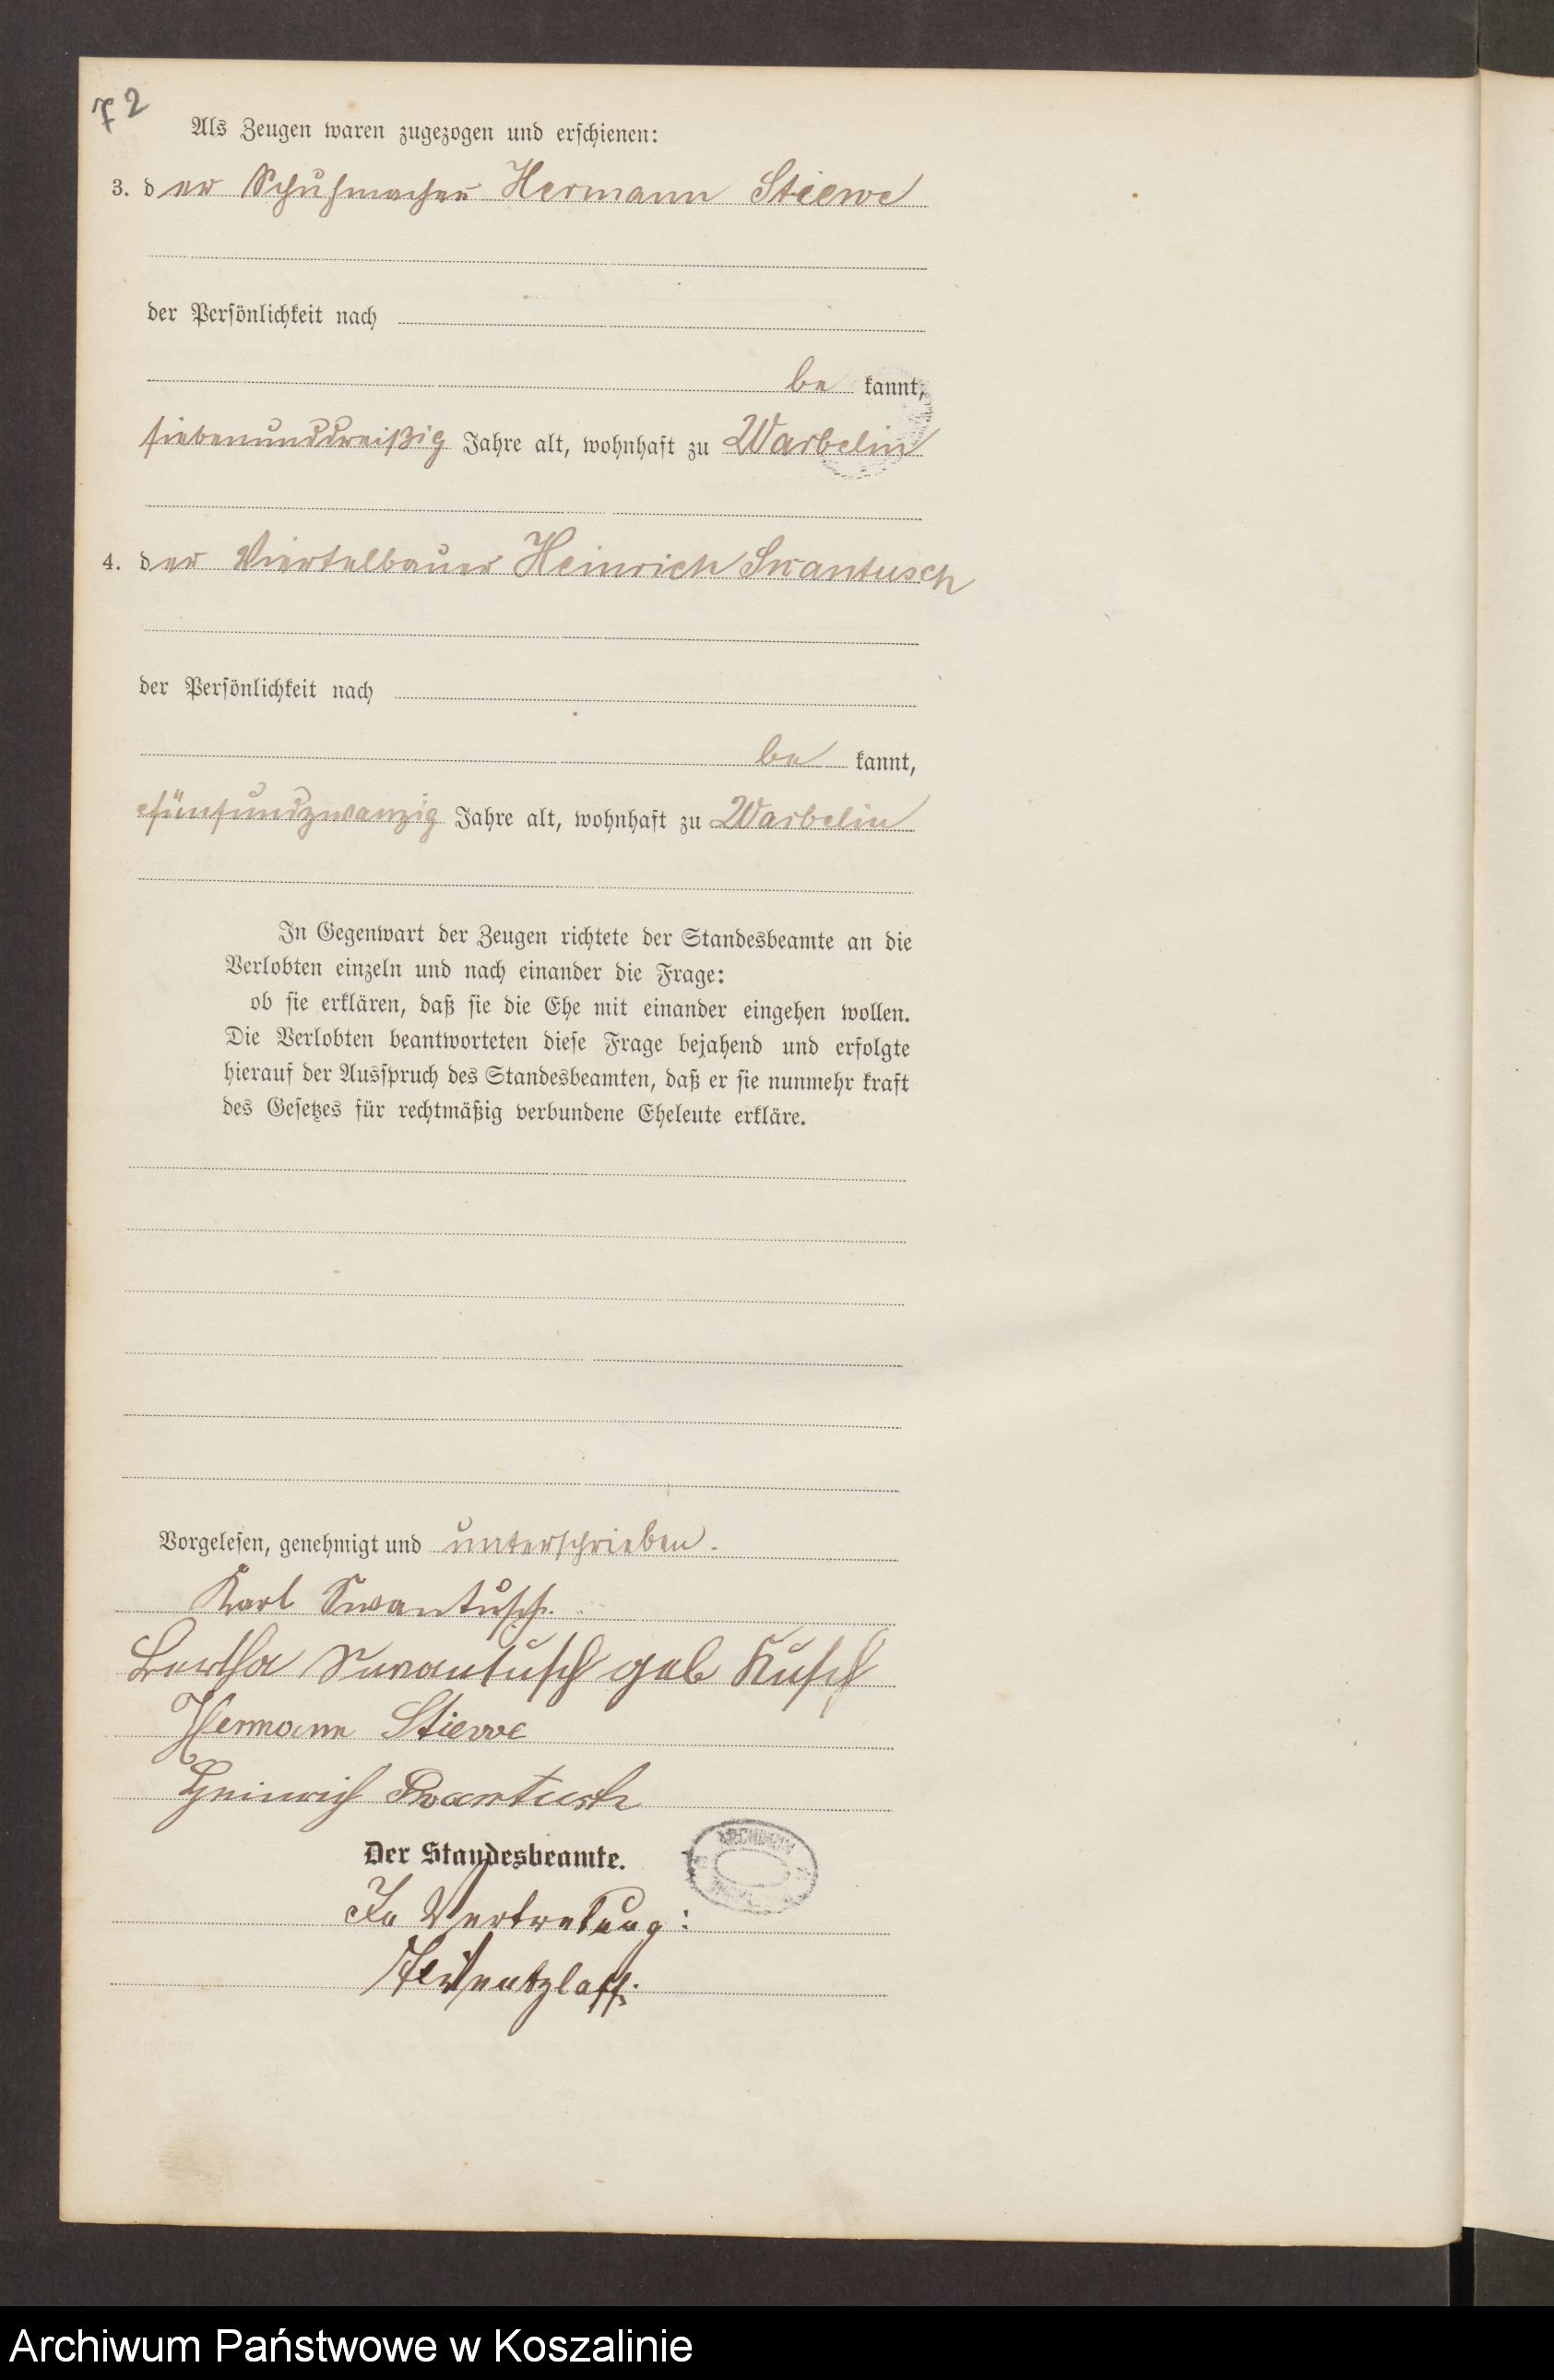 72
Als Zeugen waren zugezogen und erschienen:
3. der Schuhmacher Hermann Stiewe
der Persönlichkeit nach
be kannt,
siebenunddreißig Jahre alt, wohnhaft zu Warbelin
4. der Viertelbauer Heinrich Swantusch
der Persönlichkeit nach
be kannt,
fünfundzwanzig Jahre alt, wohnhaft zu Warbelin
In Gegenwart der Zeugen richtete der Standesbeamte an die
Verlobten einzeln und nach einander die Frage:
ob sie erklären, daß sie die Ehe mit einander eingehen wollen.
Die Verlobten beantworteten diese Frage bejahend und erfolgte
hierauf der Ausspruch des Standesbeamten, daß er sie nunmehr kraft
des Gesetzes für rechtmäßig verbundene Eheleute erkläre.
Vorgelesen, genehmigt und unterschrieben.
Karl Swantusch.
Bertha Swantusch geb Kusch
Hermann Stiewe
Heinrich Swantusch
Der Standesbeamte.
In Vertretung:
Archiwum Państwowe w Koszalinie